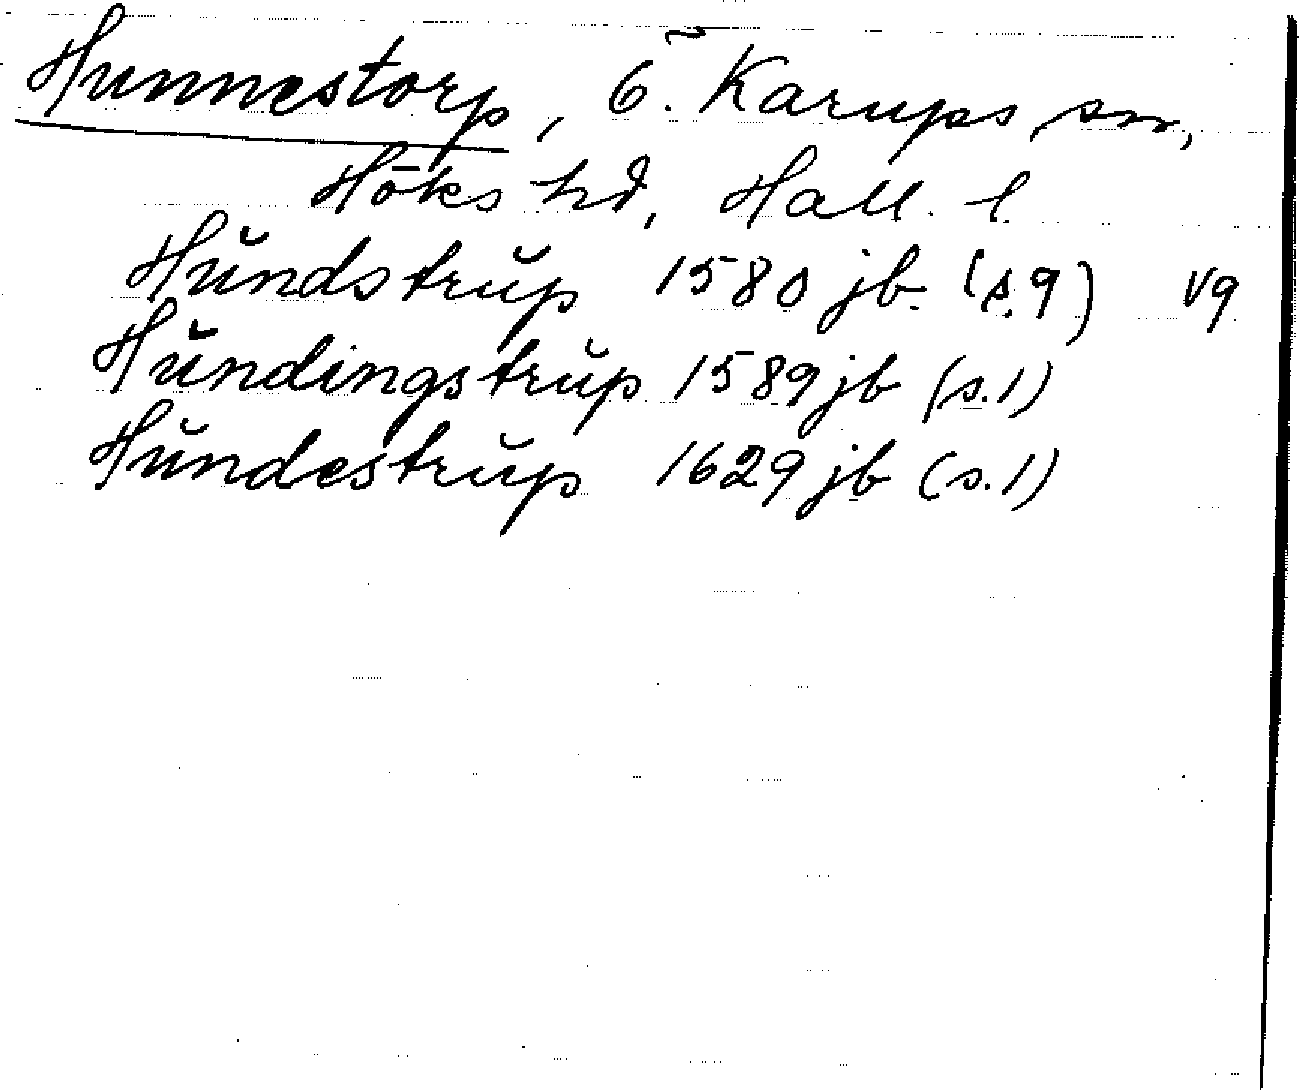 Hunnestorp, Ö. Karups sn,
Höks hd, Hall. l.
Hŭndstrŭp 1580 jb. (s. 9) vg
Hŭndingstrŭp 1589 jb (s. 1)
Hŭndestrŭp 1629 jb (s. 1)